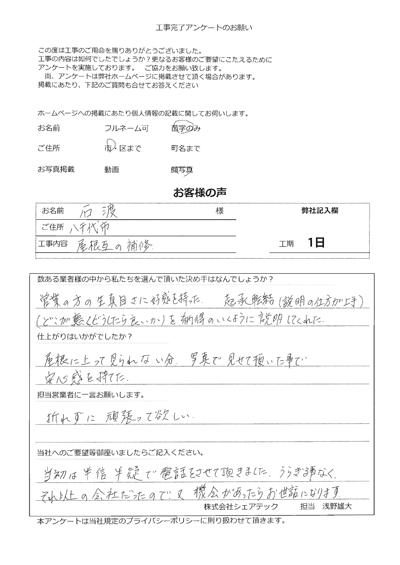 工事完了アンケートのお願い
この度は工事のご用命を賜りありがとうございました。
工事の内容は如何でしたでしょうか？更なるお客様のご要望にこたえるために
アンケートを実施しております。 ご協力をお願い致します。
尚、アンケートは弊社ホームページに掲載させて頂く場合があります。
掲載にあたり、下記のご質問も合せてお答えください
ホームページへの掲載にあたり個人情報の記載に関してお伺いします。
お名前 フルネーム可 苗字のみ
ご住所 市・区まで 町名まで
お写真掲載 動画 顔写真
お客様の声
お名前 石渡 様 弊社記入欄
ご住所 八千代市
工事内容 屋根瓦の補修 工期 1日
数ある業者様の中から私たちを選んで頂いた決め手はなんでしょうか？
営業の方の生真目さに好感を持った. 起承転結(説明の仕方が上手)
(どこが悪くどうしたら良いか)を納得のいくように説明してくれた.
仕上がりはいかがでしたか？
屋根に上って見られない分、写真で見せて頂いた事で
安心感を持てた.
担当営業者に一言お願いします。
折れずに頑張って欲しい.
当社へのご要望等御座いましたらご記入ください。
当初は半信半疑で電話をさせて頂きました. うらぎる事なく、
それ以上の会社だったので、又機会があったらお世話になります
株式会社シェアテック 担当 浅野雄大
本アンケートは当社規定のプライバシーポリシーに則り扱わせて頂きます。